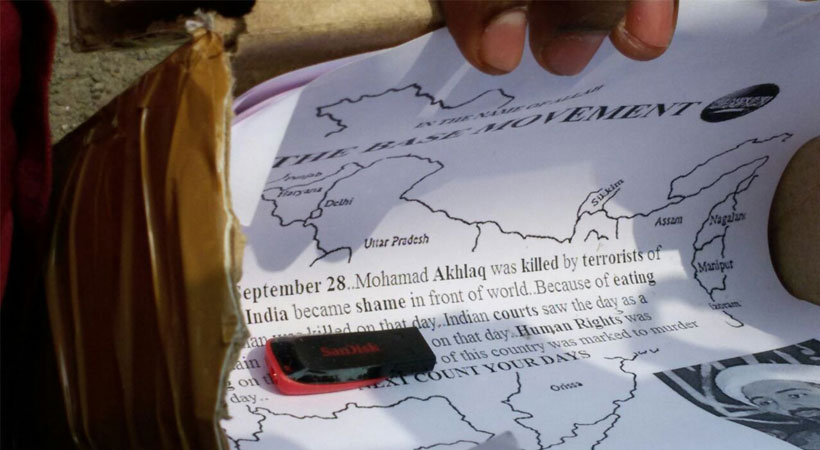 IN THE NAME OF ALLAH
THE BASE MOVEMENT
Punjab
Haryana
Delhi
Sikkim
Uttar Pradesh
Assam
Nagaland
Manipur
eptember 28..Mohamad Akhlaq was killed by terrorists of
India became shame in front of world..Because of eating
was killed on that day..Indian courts saw the day as a
on that day..Human Rights was
of this country was marked to murder
NEXT COUNT YOUR DAYS
day..
Orissa
SanDisk